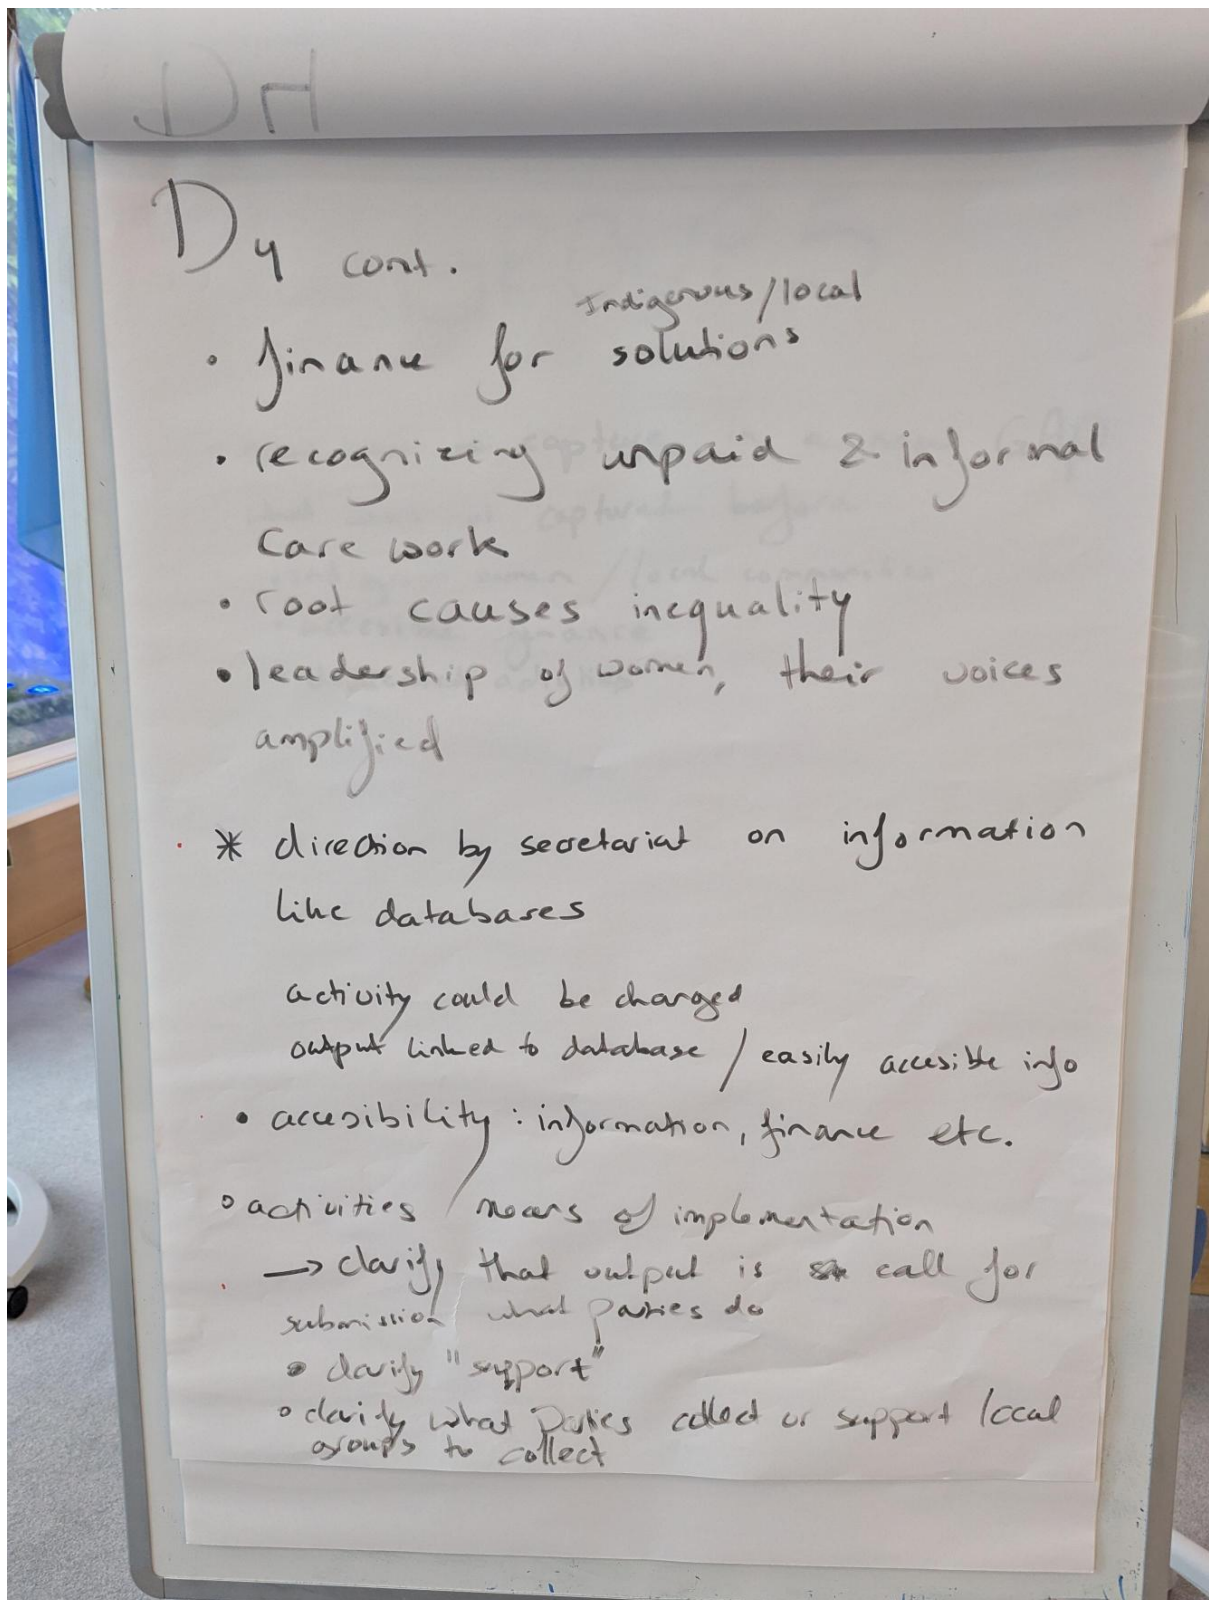 D4
D4 cont.
Indigenous/local
• finance for solutions
• recognizing unpaid & informal
care work
• root causes inequality
• leadership of women, their voices
amplified
* direction by secretariat on information
like databases
activity could be changed
output linked to database / easily accesible info
• accesibility : information, finance etc.
• activities / means of implementation
→ clarify that output is call for
submission what parties do
• clarify "support"
• clarify what Parties collect or support local
groups to collect